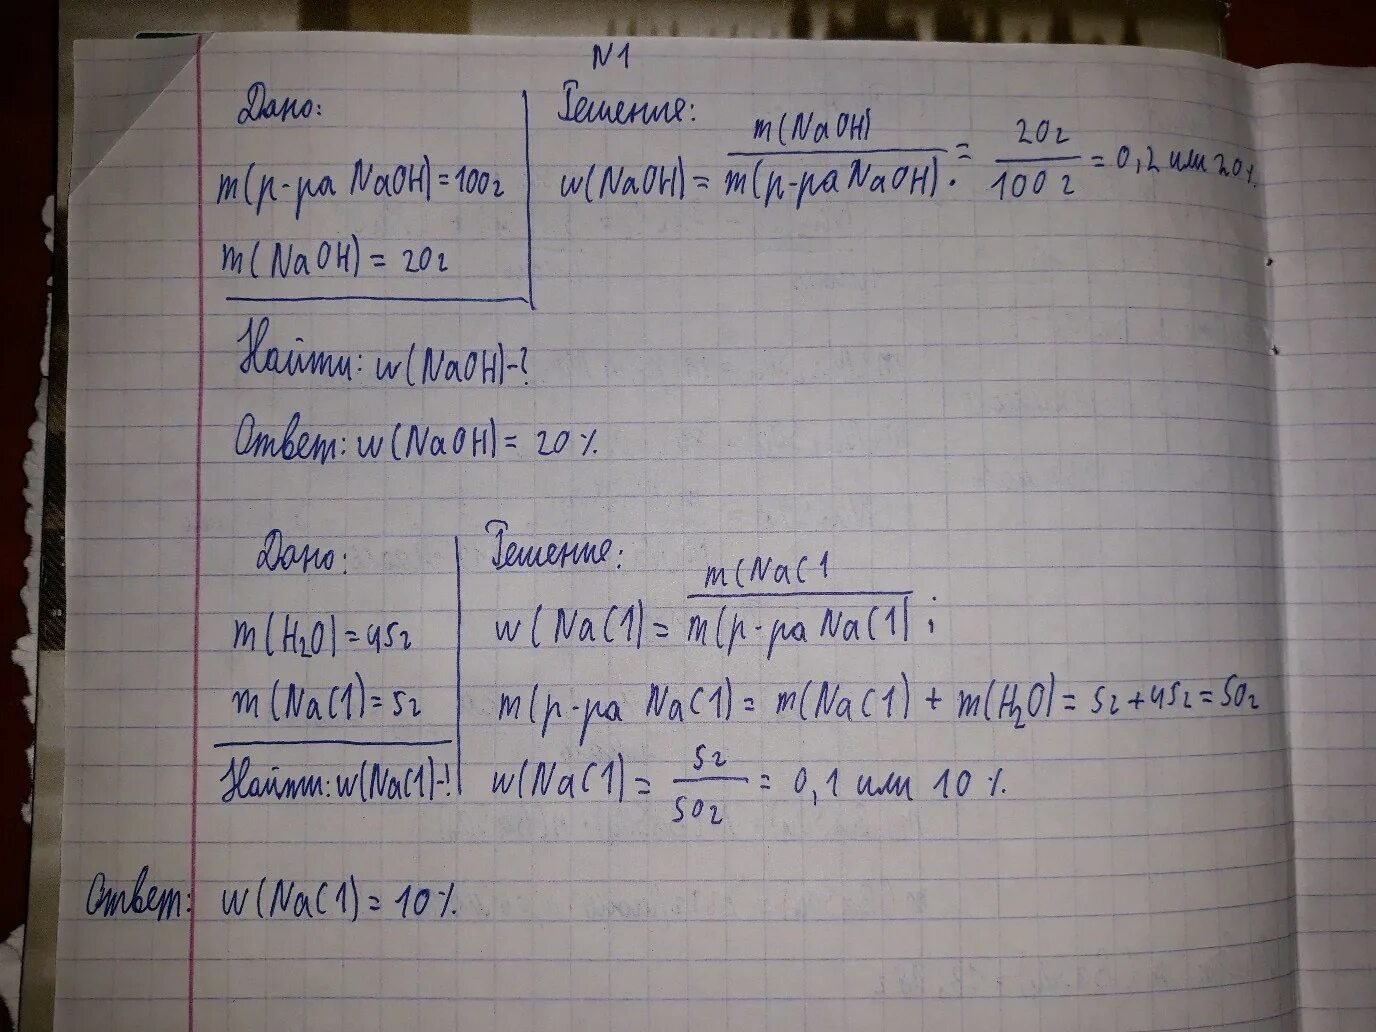 N1
Дано:
m(р-ра NaOH)=100г
m(NaOH)=20г
Найти: w(NaOH)-?
Решение:
w(NaOH) = m(NaOH) / m(р-ра NaOH). = 20г / 100г = 0,2 или 20%.
Ответ: w(NaOH) = 20%.
Дано:
m(H₂O)=45г
m(NaCl)=5г
Найти: w(NaCl)-?
Решение:
w(NaCl) = m(NaCl / m(р-ра NaCl);
m(р-ра NaCl) = m(NaCl) + m(H₂O) = 5г+45г=50г
w(NaCl) = 5г / 50г = 0,1 или 10%.
Ответ: w(NaCl) = 10%.